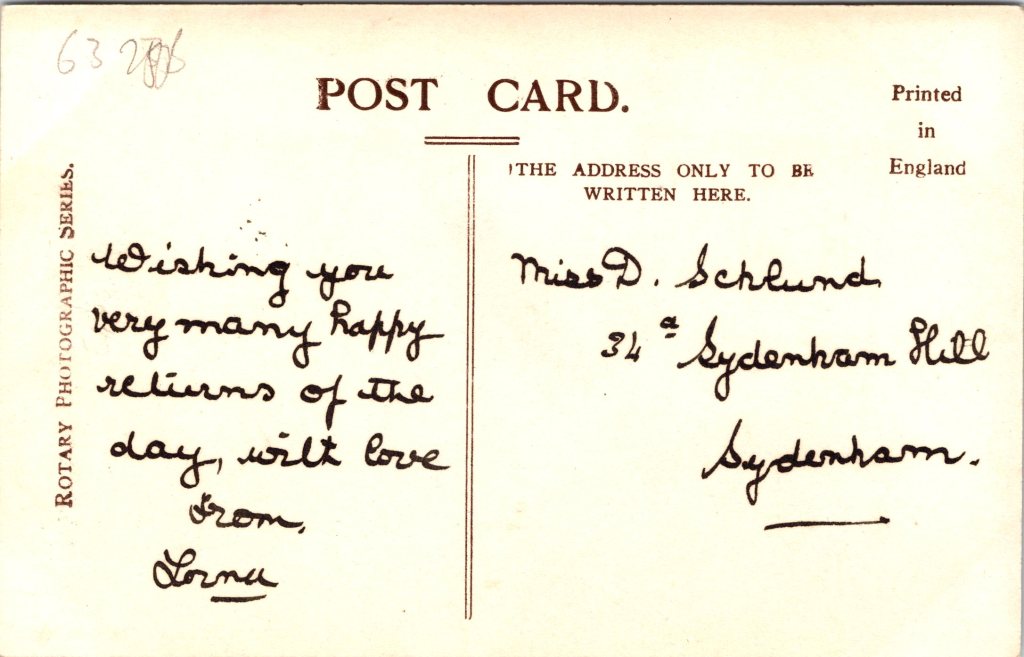 63
POST CARD.
Printed
in
England
THE ADDRESS ONLY TO BE
WRITTEN HERE.
ROTARY PHOTOGRAPHIC SERIES.
Wishing you
very many happy
returns of the
day, with love
from,
Lorna
Miss D. Schlund
34a Sydenham Hill
Sydenham.